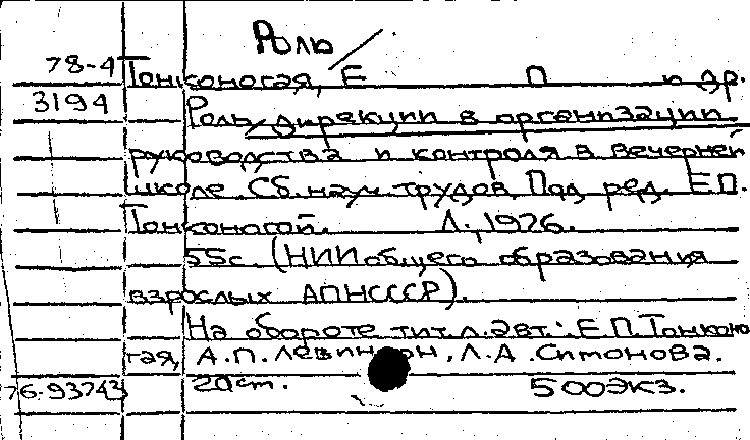 Роль
78-4 Тонконогая, Е П и др.
3194 Роль дирекции в организации
руководства и контроля в вечерней
школе. Сб. науч. трудов. Под ред. Е.П.
Тонконогой. Л., 1976.
55с. (НИИ общего образования
взрослых АПН СССР).
На обороте тит.л. авт.: Е.П. Тонконо
гая, А.П. Левин он, Л.А. Симонова.
76-93743 20см. 500экз.